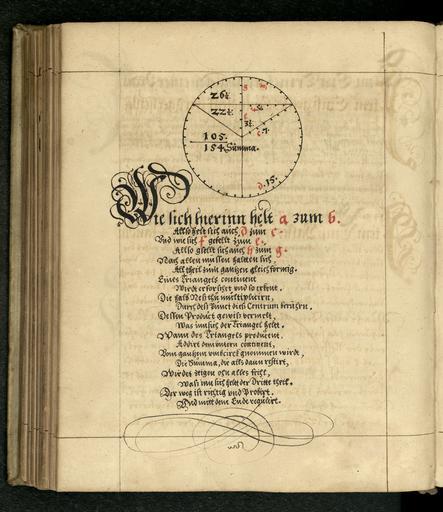 26¼.
22¼.
105.
154. Summa.
d. 15.
Wie sich hierinn helt a zum b.
Allso helt sich auch d zum c.
Vnd wie sich f gesellt zum e.
Allso gsellt sich auch h zum g.
Nach allem müssen hallten sich
All theil zum gantzen gleichformig.
Eines Triangels continent
Wirdt erforschet vnd so erkent.
Die halb multiplicirn,
Durch deß Punct dieß Centrum berührn.
Dessen Product gewiß vermelt,
Was inn sich der Triangel helt.
Wann des Triangels product
Addirt dem vntern continent,
Vom gantzen vmbcirck gnommen wirdt,
Die Summa, die alls dann restirt,
Wirdet zeigen ohn alles feihl,
Waß inn sich helt der Dritte theil.
Der weg ist richtig vnd Probirt.
Vnd mitt dem Ende regulirt.